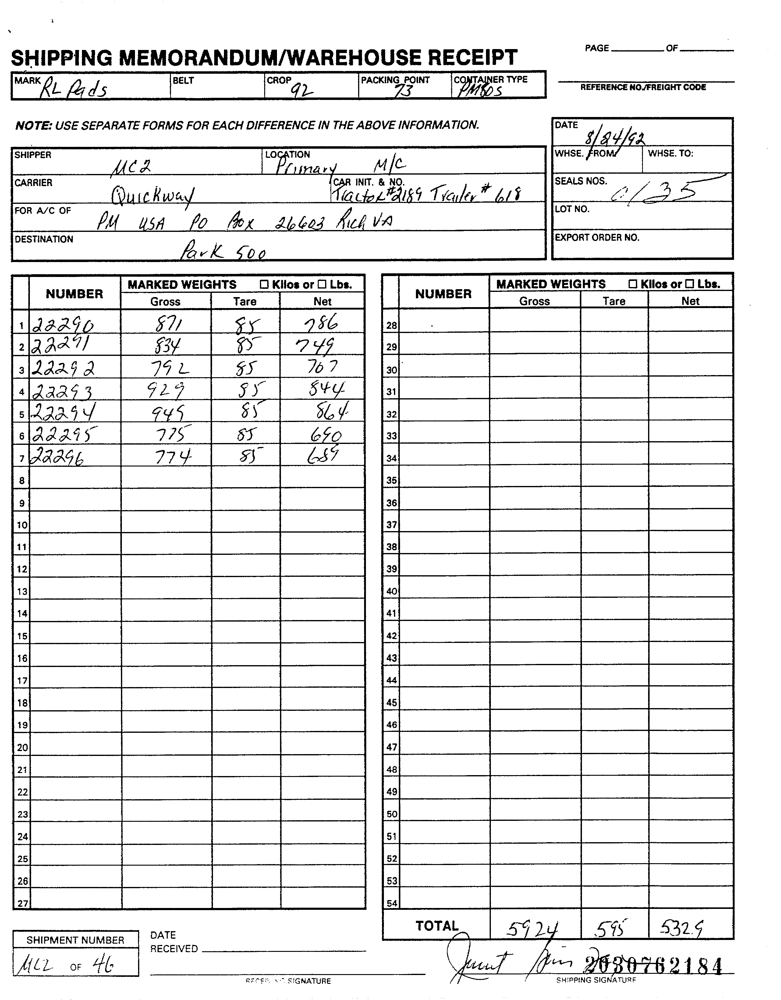 PAGE ____ OF ____
SHIPPING MEMORANDUM/WAREHOUSE RECEIPT
MARK RL Pads BELT CROP 92 PACKING POINT 73 CONTAINER TYPE PMBOS
REFERENCE NO./FREIGHT CODE
NOTE: USE SEPARATE FORMS FOR EACH DIFFERENCE IN THE ABOVE INFORMATION.
DATE 8/24/92
SHIPPER MC2 LOCATION Primary M/C
WHSE. FROM WHSE. TO:
CARRIER Quickway CAR INIT. & NO. Tractor #2189 Trailer # 618
SEALS NOS. 0135
FOR A/C OF PM USA PO Box 26603 Rich VA
LOT NO.
DESTINATION Park 500
EXPORT ORDER NO.
NUMBER MARKED WEIGHTS ☐ Kilos or ☐ Lbs. NUMBER MARKED WEIGHTS ☐ Kilos or ☐ Lbs.
Gross Tare Net Gross Tare Net
1 22290 871 85 786 28
2 22291 834 85 749 29
3 22292 792 85 707 30
4 22293 929 85 844 31
5 22294 949 85 864 32
6 22295 775 85 690 33
7 22296 774 85 689 34
8 35
9 36
10 37
11 38
12 39
13 40
14 41
15 42
16 43
17 44
18 45
19 46
20 47
21 48
22 49
23 50
24 51
25 52
26 53
27 54
TOTAL 5924 595 5329
SHIPMENT NUMBER
MC2 OF 46
DATE
RECEIVED
SIGNATURE
2030762184
SHIPPING SIGNATURE